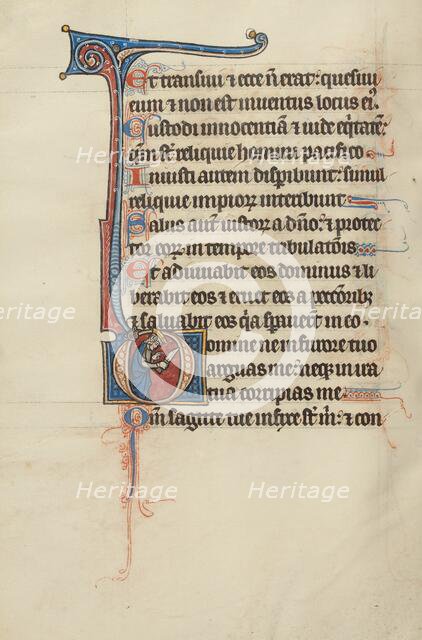 Et transiui & ecce ñ erat: quesiui
eum & non est inuentus locus ei⁹.
Custodi innocentiã & uide eq̃tatẽ:
qm̃ st̃ reliquie homini pacifico.
Iniusti autem disp̃ibunt: simul
reliquie impior̃ interibunt.
Salus aut̃ iustor̃ a dño: & protec
tor eor̃ in tempore tribulatõis.
Et adiuuabit eos dominus & li
berabit eos & eruet eos a pecc̃oribz
& saluabit eos q̃a sp̃auer̃t in eo.
Domine ne in furore tuo
arguas me: neq̃ in ira
tua corripias me.
Qm̃ sagitte tue infixe st̃ m̃: & con
Heritage Heritage
Heritage Heritage
Heritage Heritage